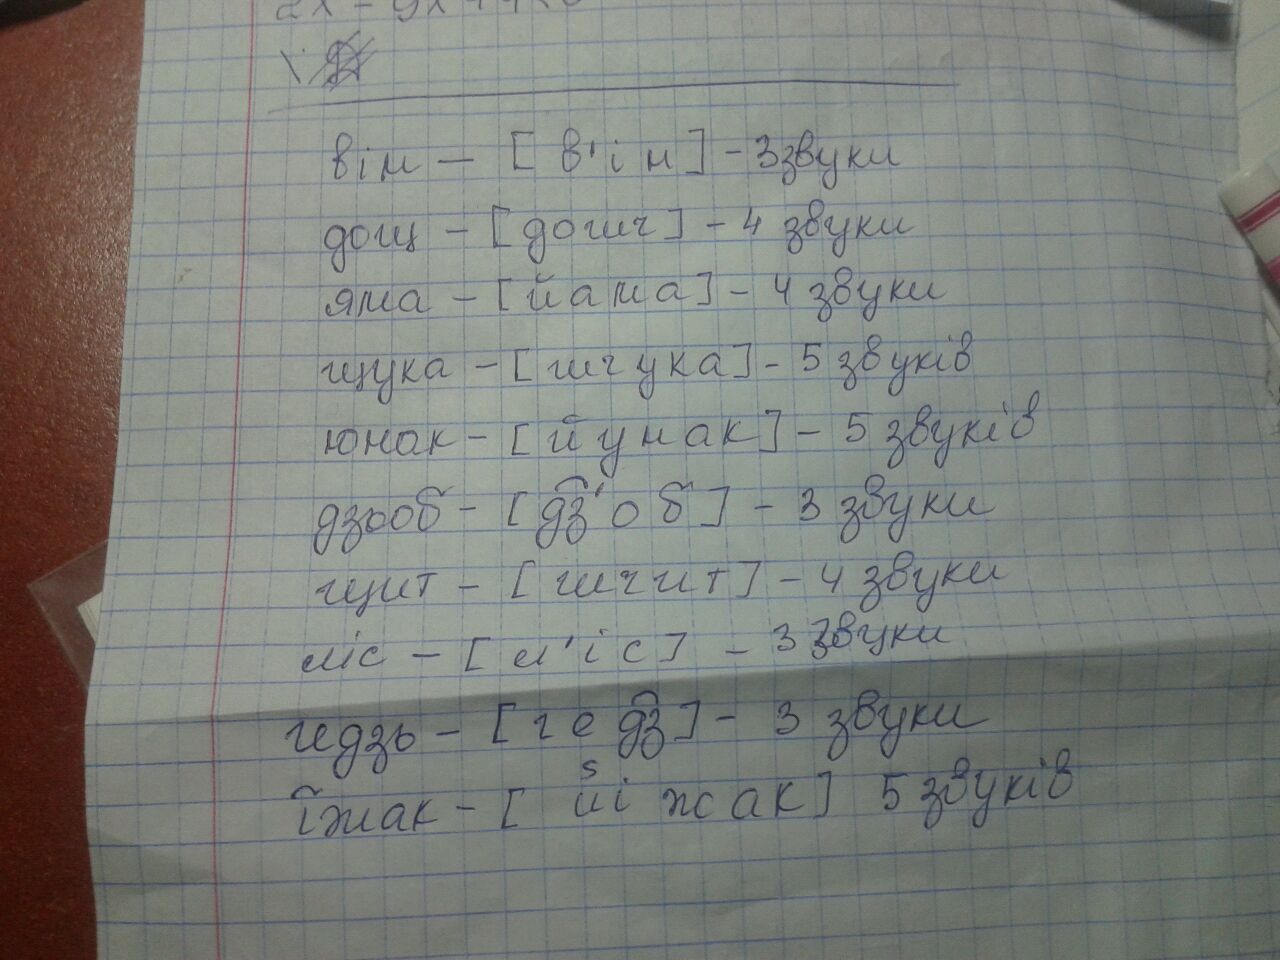 він – [в'ін] – 3 звуки
дощ – [дошч] – 4 звуки
яма – [йама] – 4 звуки
щука – [шчука] – 5 звуків
юнак – [йунак] – 5 звуків
дзьоб – [дз'об] – 3 звуки
щит – [шчит] – 4 звуки
ліс – [л'іс] – 3 звуки
ґедзь – [ґедз] – 3 звуки
їжак – [йіжак] 5 звуків